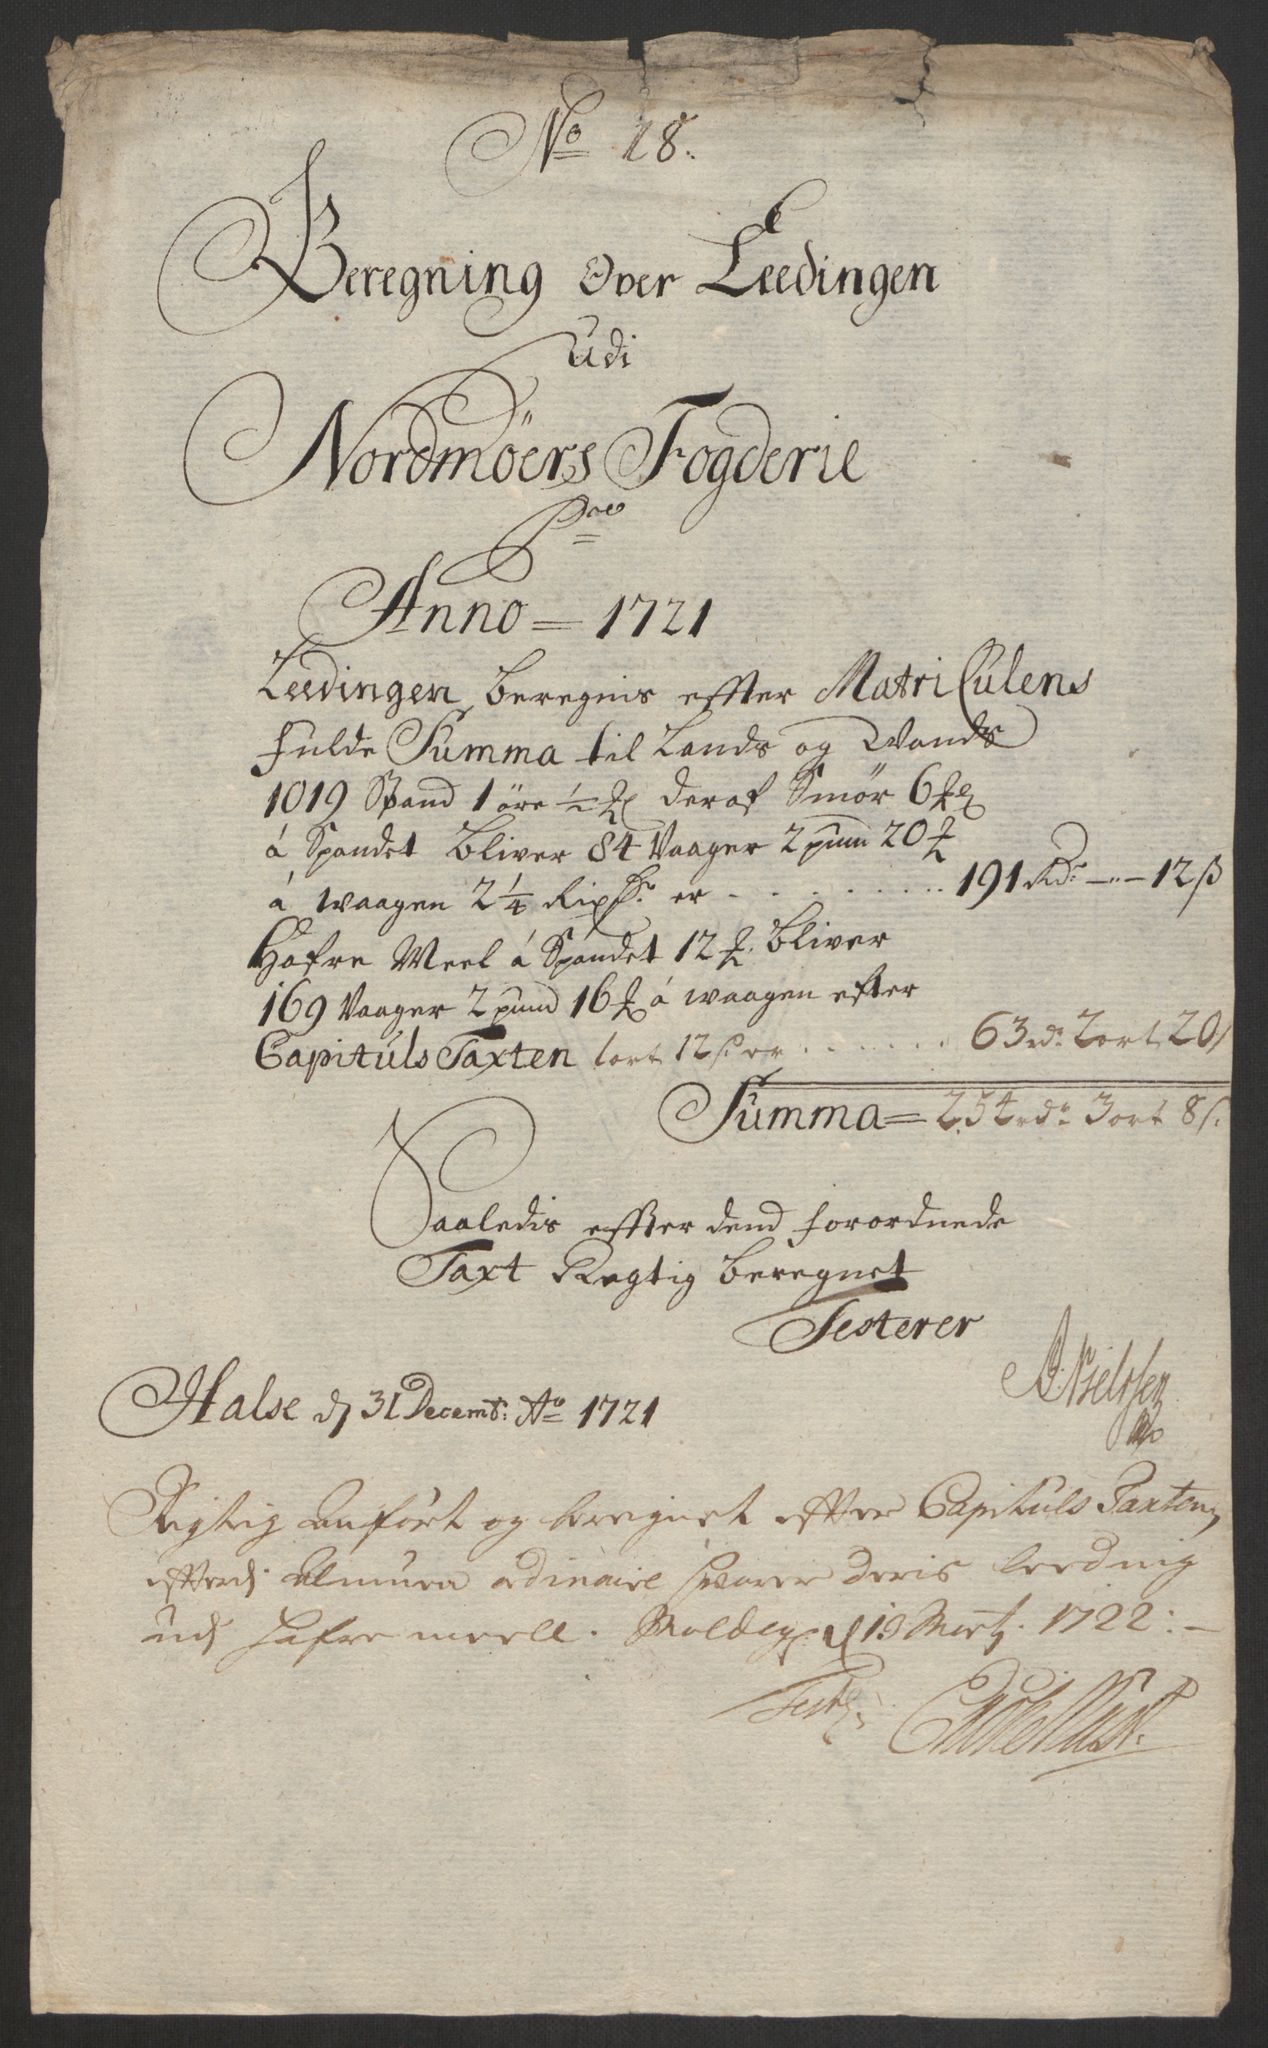 No 18.
Beregning Over Leedingen
Udi
Nordmöers Fogderie
Pro
Anno = 1721
Leedingen beregnis effter MatriCulens
fulde Summa til Lands og Vands
1019 Spand 1 öre ½ deraf Smör 6
á Spandet bliver 84 Vaager 2 pund 20
á waagen 2¼ er 191 Rdr - 12 β
Hafre Meel á Spandet 12 bliver
169 Vaager 2 pund 16 á waagen efter
Capituls Taxten 1 ort 12 β er 63 rdr 2 ort 20 β
Summa = 254 rdr 3 ort 8 β.
Saaledis effter dend forordnede
Taxt Rigtig beregnet
Testerer
Halse d 31 Decemb: Ao 1721
Nielssen
Rigtig anfört og beregnet efter Capituls Taxten,
efterdj almuen ordinaire svarer deris leeding
udj hafre meell. Molde d 19 Martj. 1722: